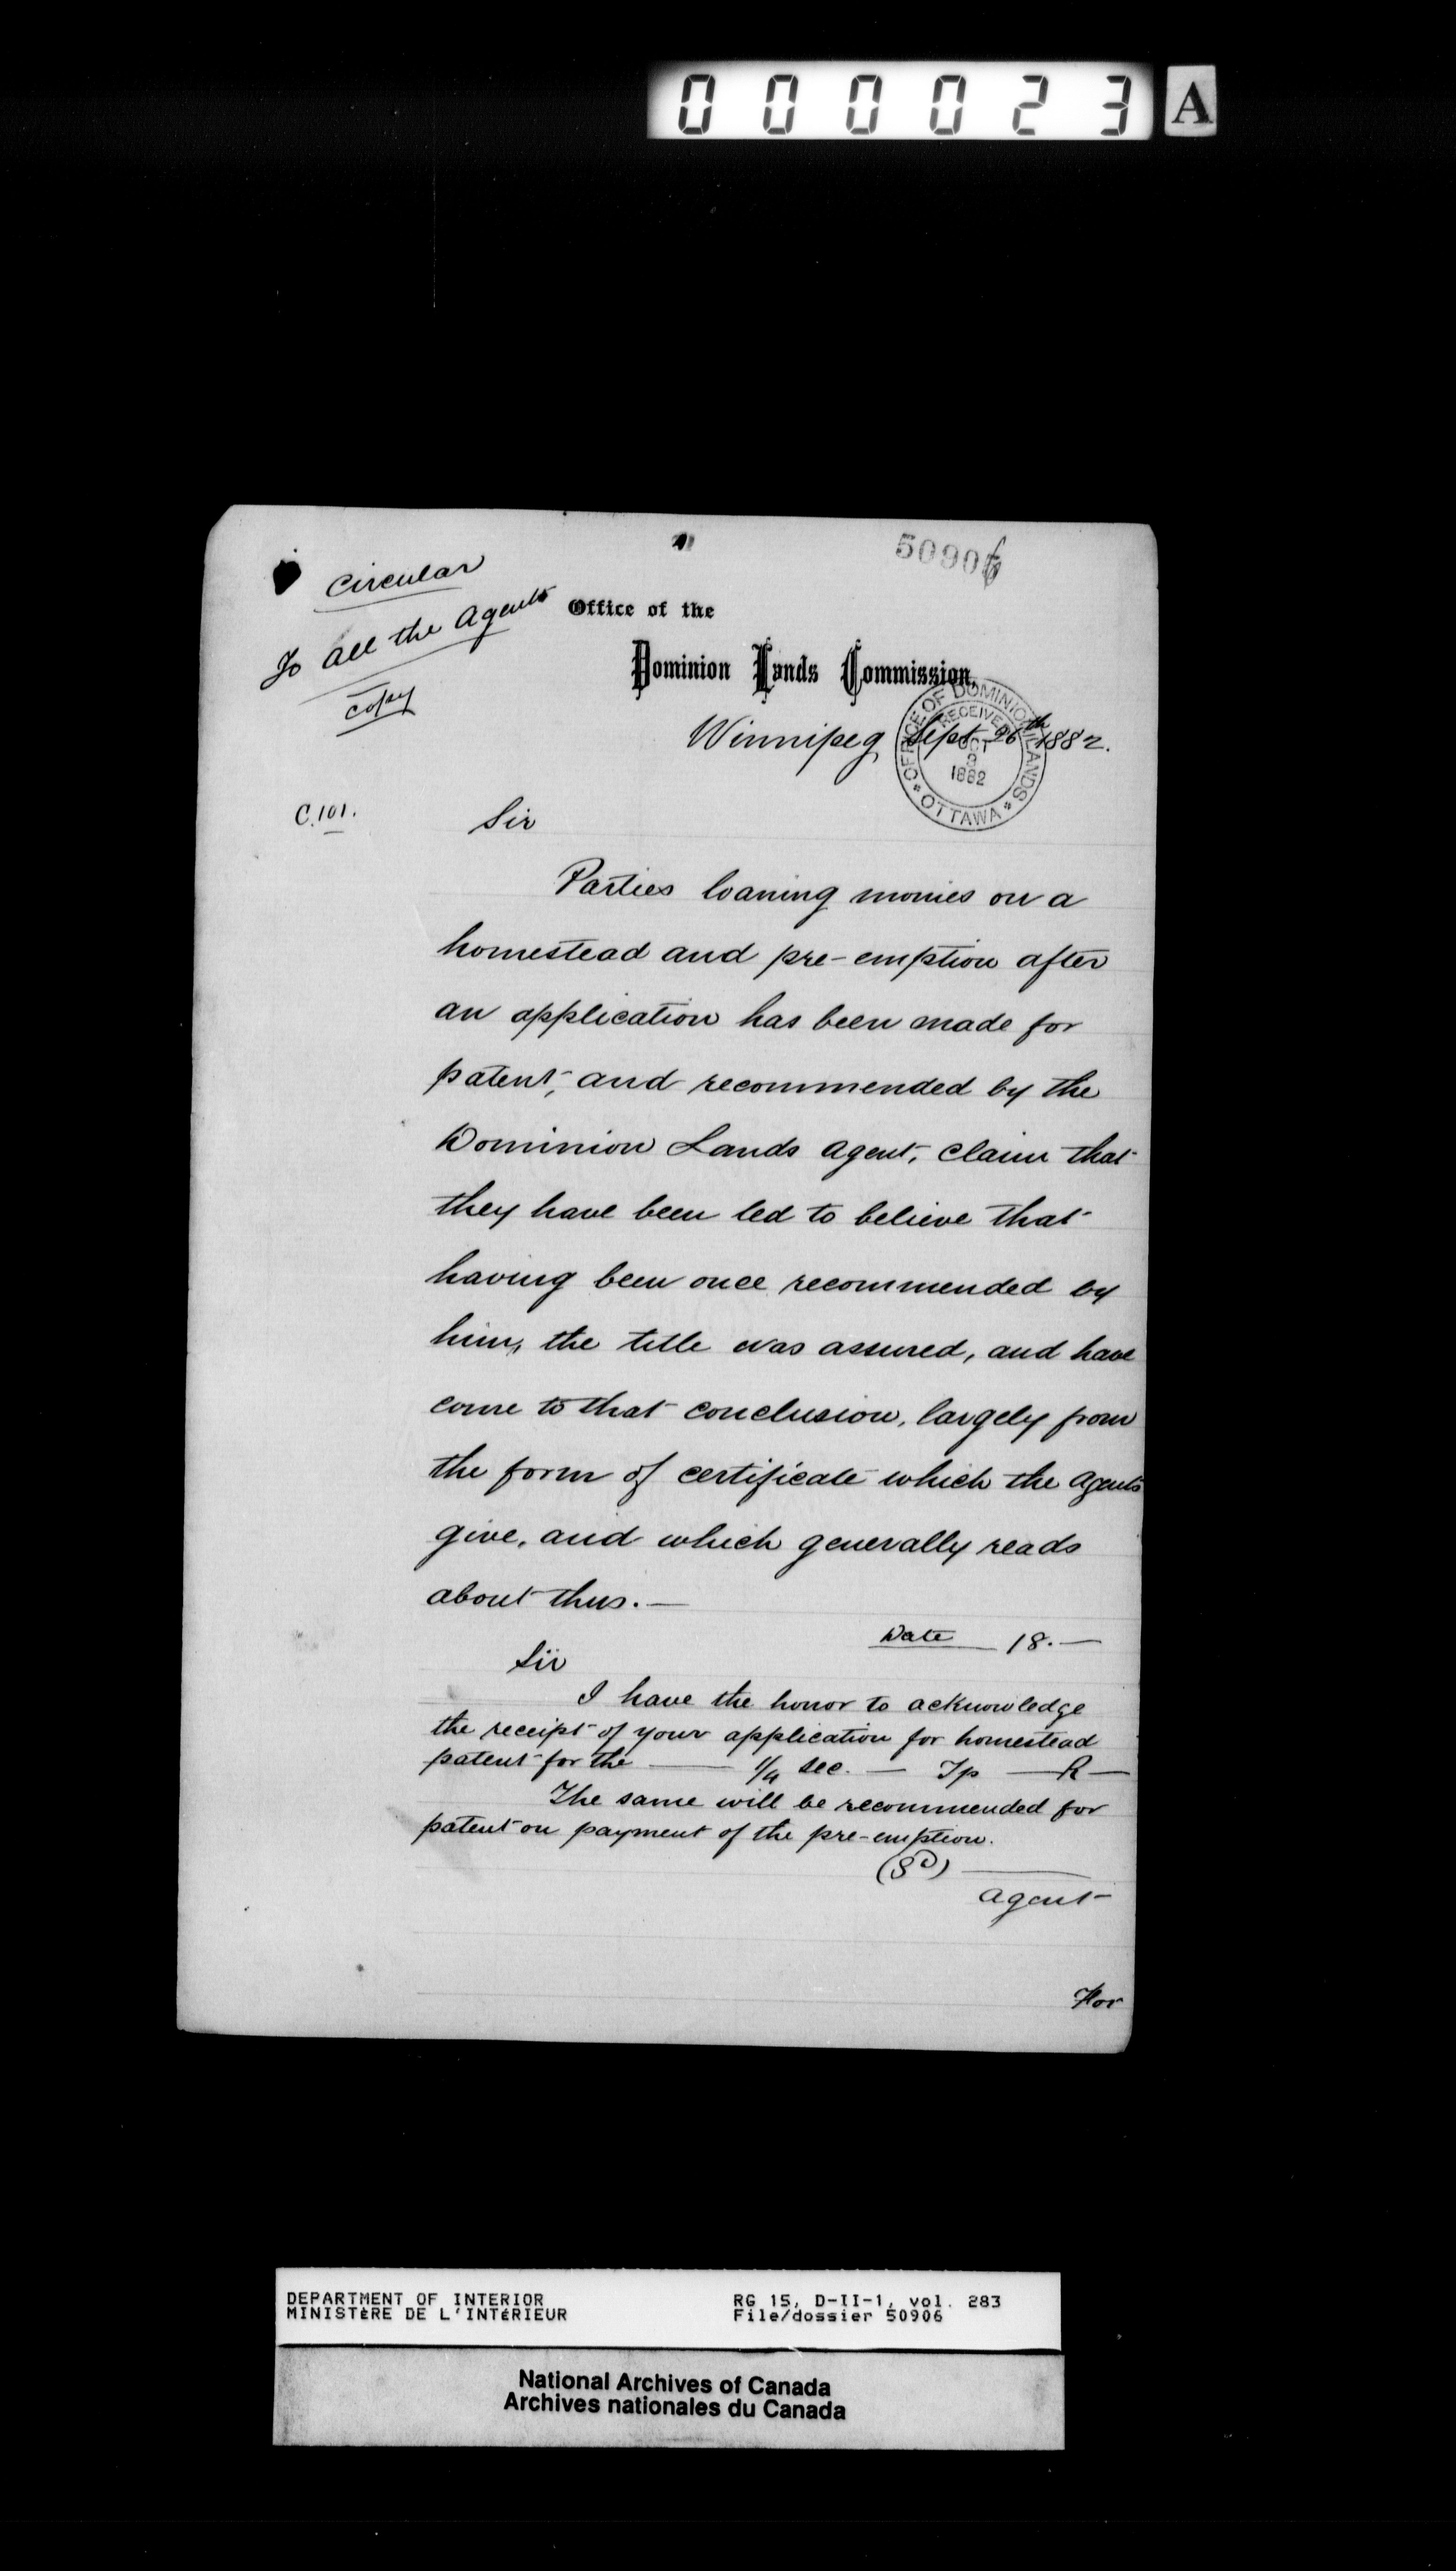 000023 A
50906
Circular
To all the Agents
Copy
Office of the
Dominion Lands Commission,
Winnipeg Sept 26th 1882.
OFFICE OF DOMINION LANDS
RECEIVED
OCT
9
1882
OTTAWA
C.101.
Sir
Parties loaning monies on a
homestead and pre-emption after
an application has been made for
patent, and recommended by the
Dominion Lands Agent, claim that
they have been led to believe that
having been once recommended by
him, the title was assured, and have
come to that conclusion, largely from
the form of certificate which the Agents
give, and which generally reads
about thus.—
Date — 18.—
Sir
I have the honor to acknowledge
the receipt of your application for homestead
patent for the — 1/4 Sec. — Tp — R —
The same will be recommended for
patent on payment of the pre-emption.
(Sd) —
Agent
For
DEPARTMENT OF INTERIOR
MINISTÈRE DE L'INTÉRIEUR
RG 15, D-II-1, vol. 283
File/dossier 50906
National Archives of Canada
Archives nationales du Canada